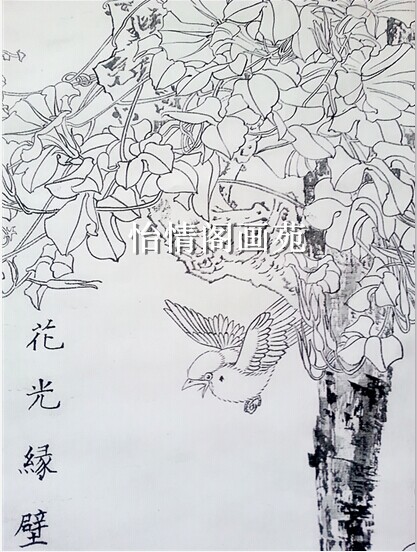 怡情阁画苑
花光緣壁